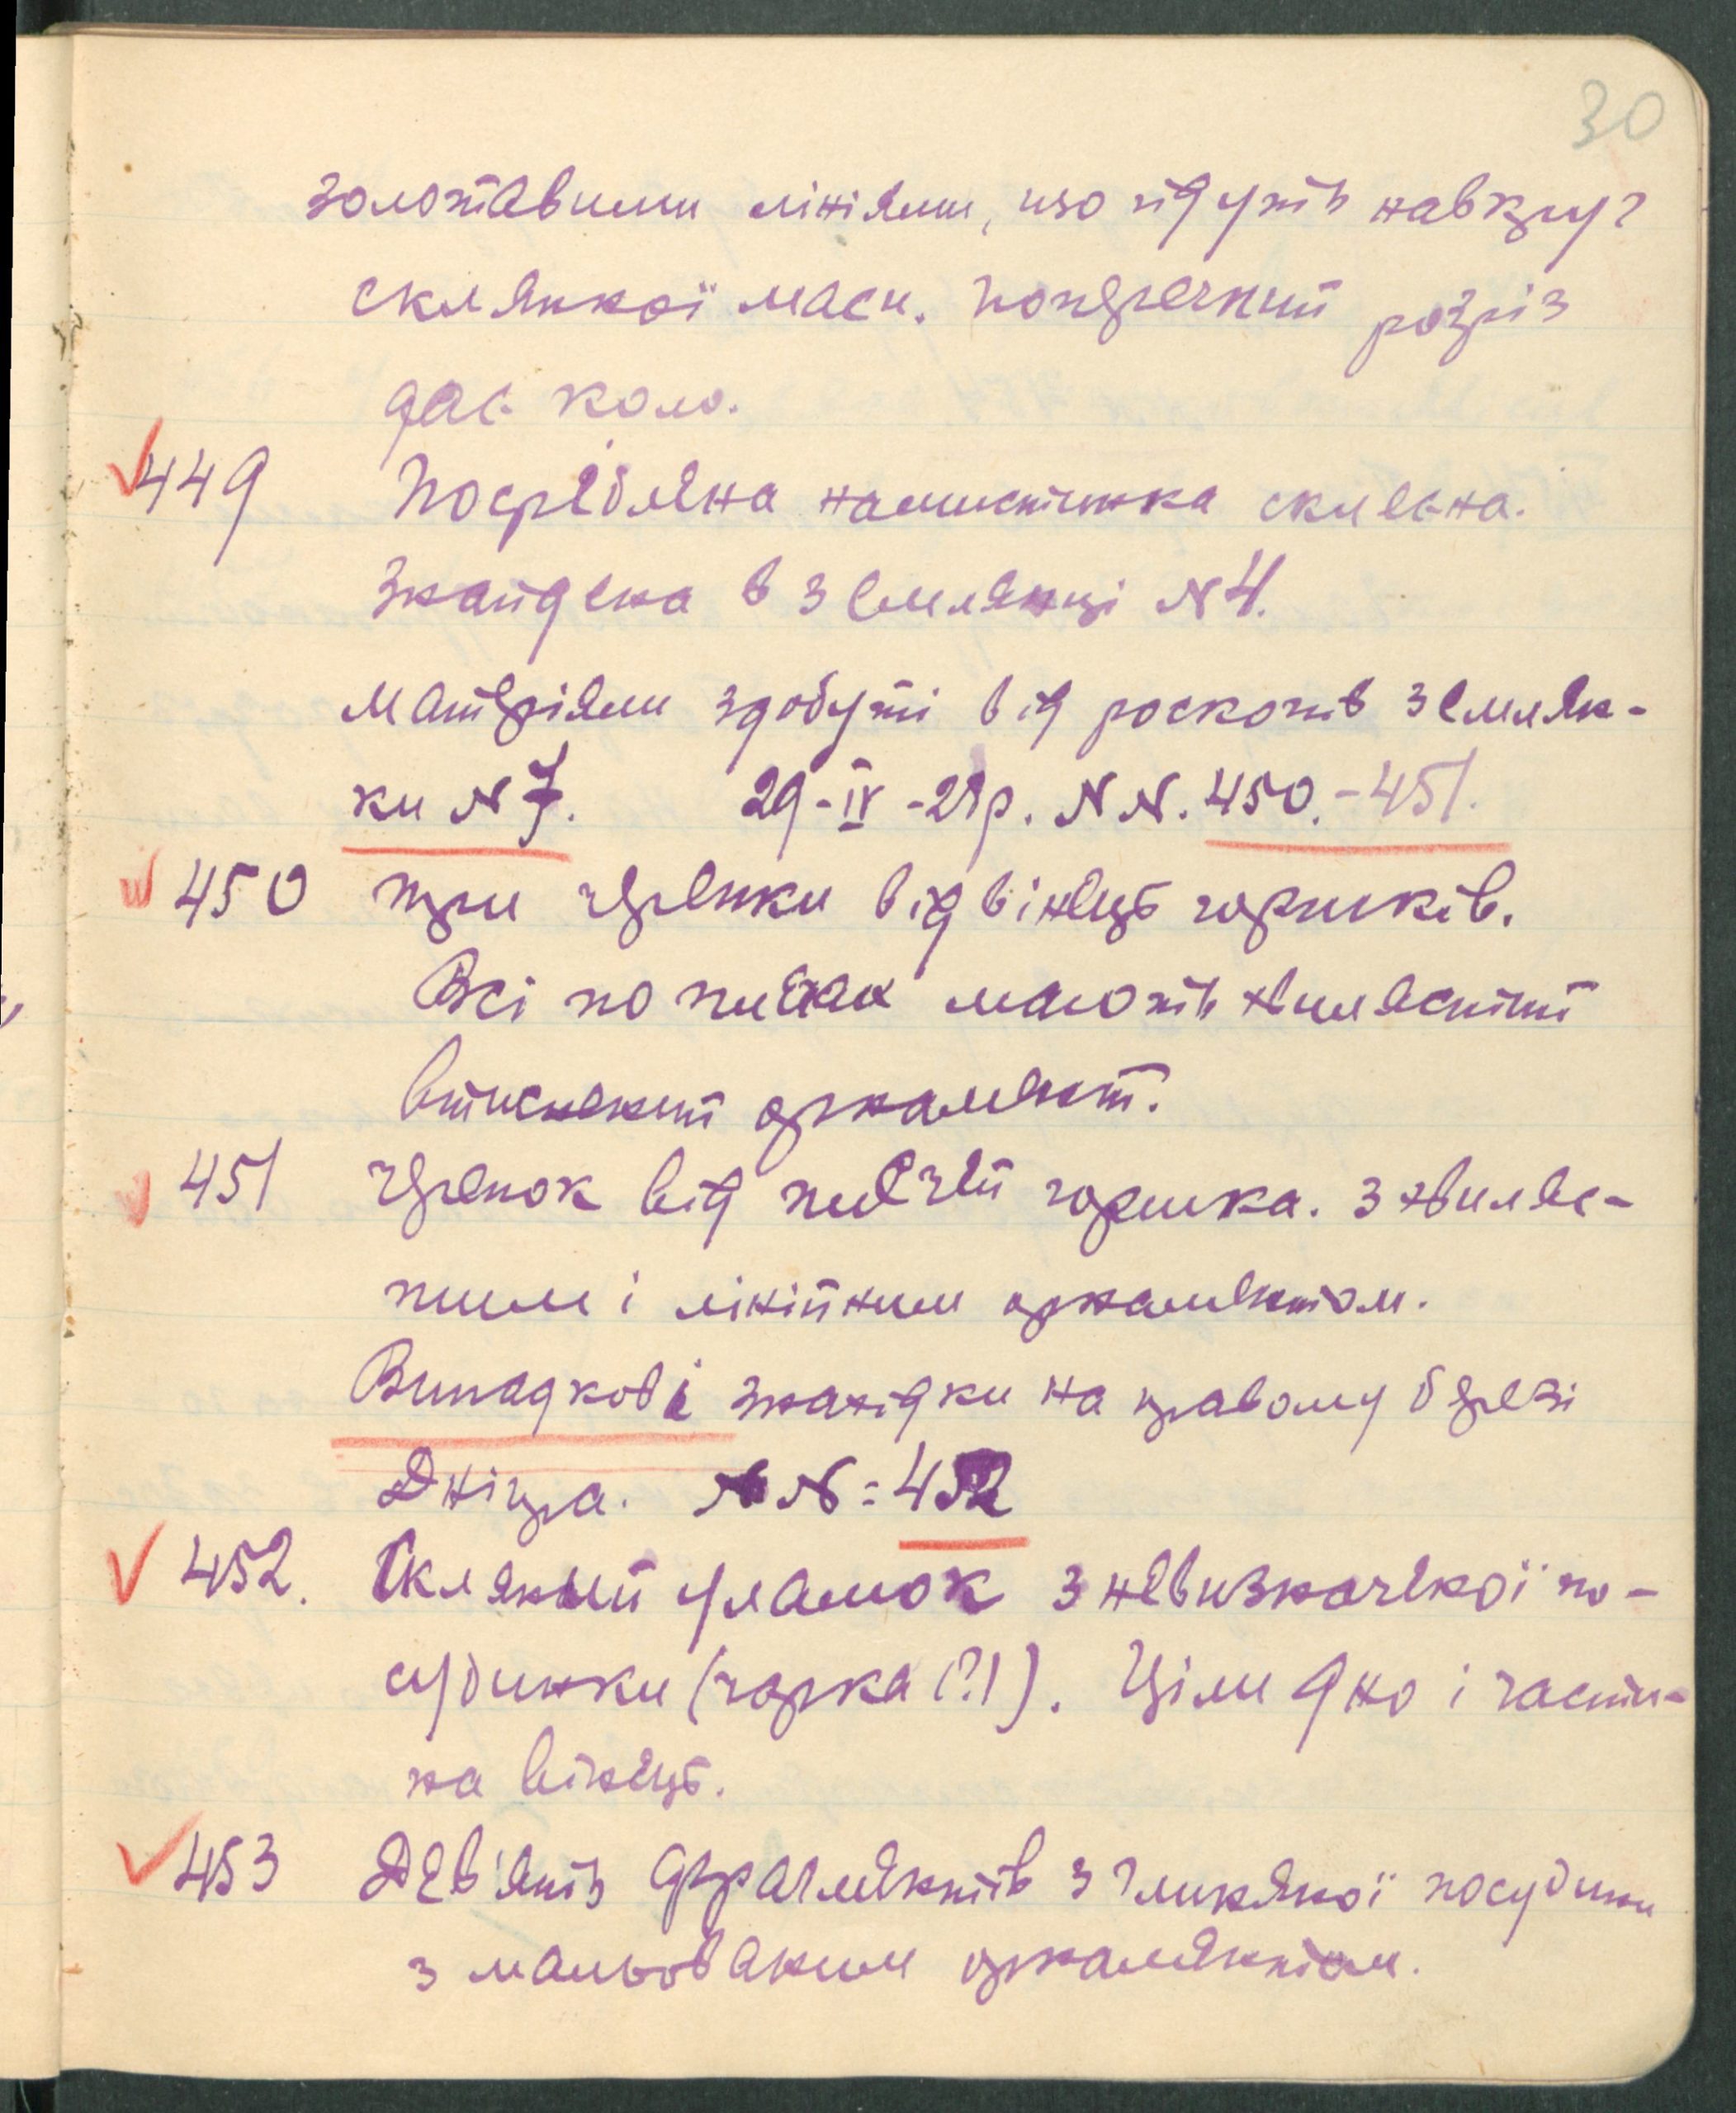 30
золотавими лініями, що йдуть навкруг
склянної маси. Поперечний розріз
дає коло.
449 Посріблена намистинка скляна.
Знайдена в землянці N 4.
Матеріяли здобуті від розкопів землян-
ки N 7. 29-IV-28р. N N. 450.-451.
450 три черепки від вінець горшків.
Всі по плечах мають хвилястий
втиснений орнамент.
451 Черепок від плечей горшка. з хвиляс-
тим і лінійним орнаментом.
Випадкові знахідки на правому березі
Дніпра. N N: 452
452. Скляний уламок з невизначеної по-
судинки (чарка (?)). Цілі дно і части-
на вінець.
453 Дев'ять фрагментів з глиняної посудини
з мальованим орнаментом.